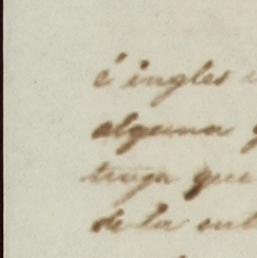 é ingles
alguna
tenga que
de la